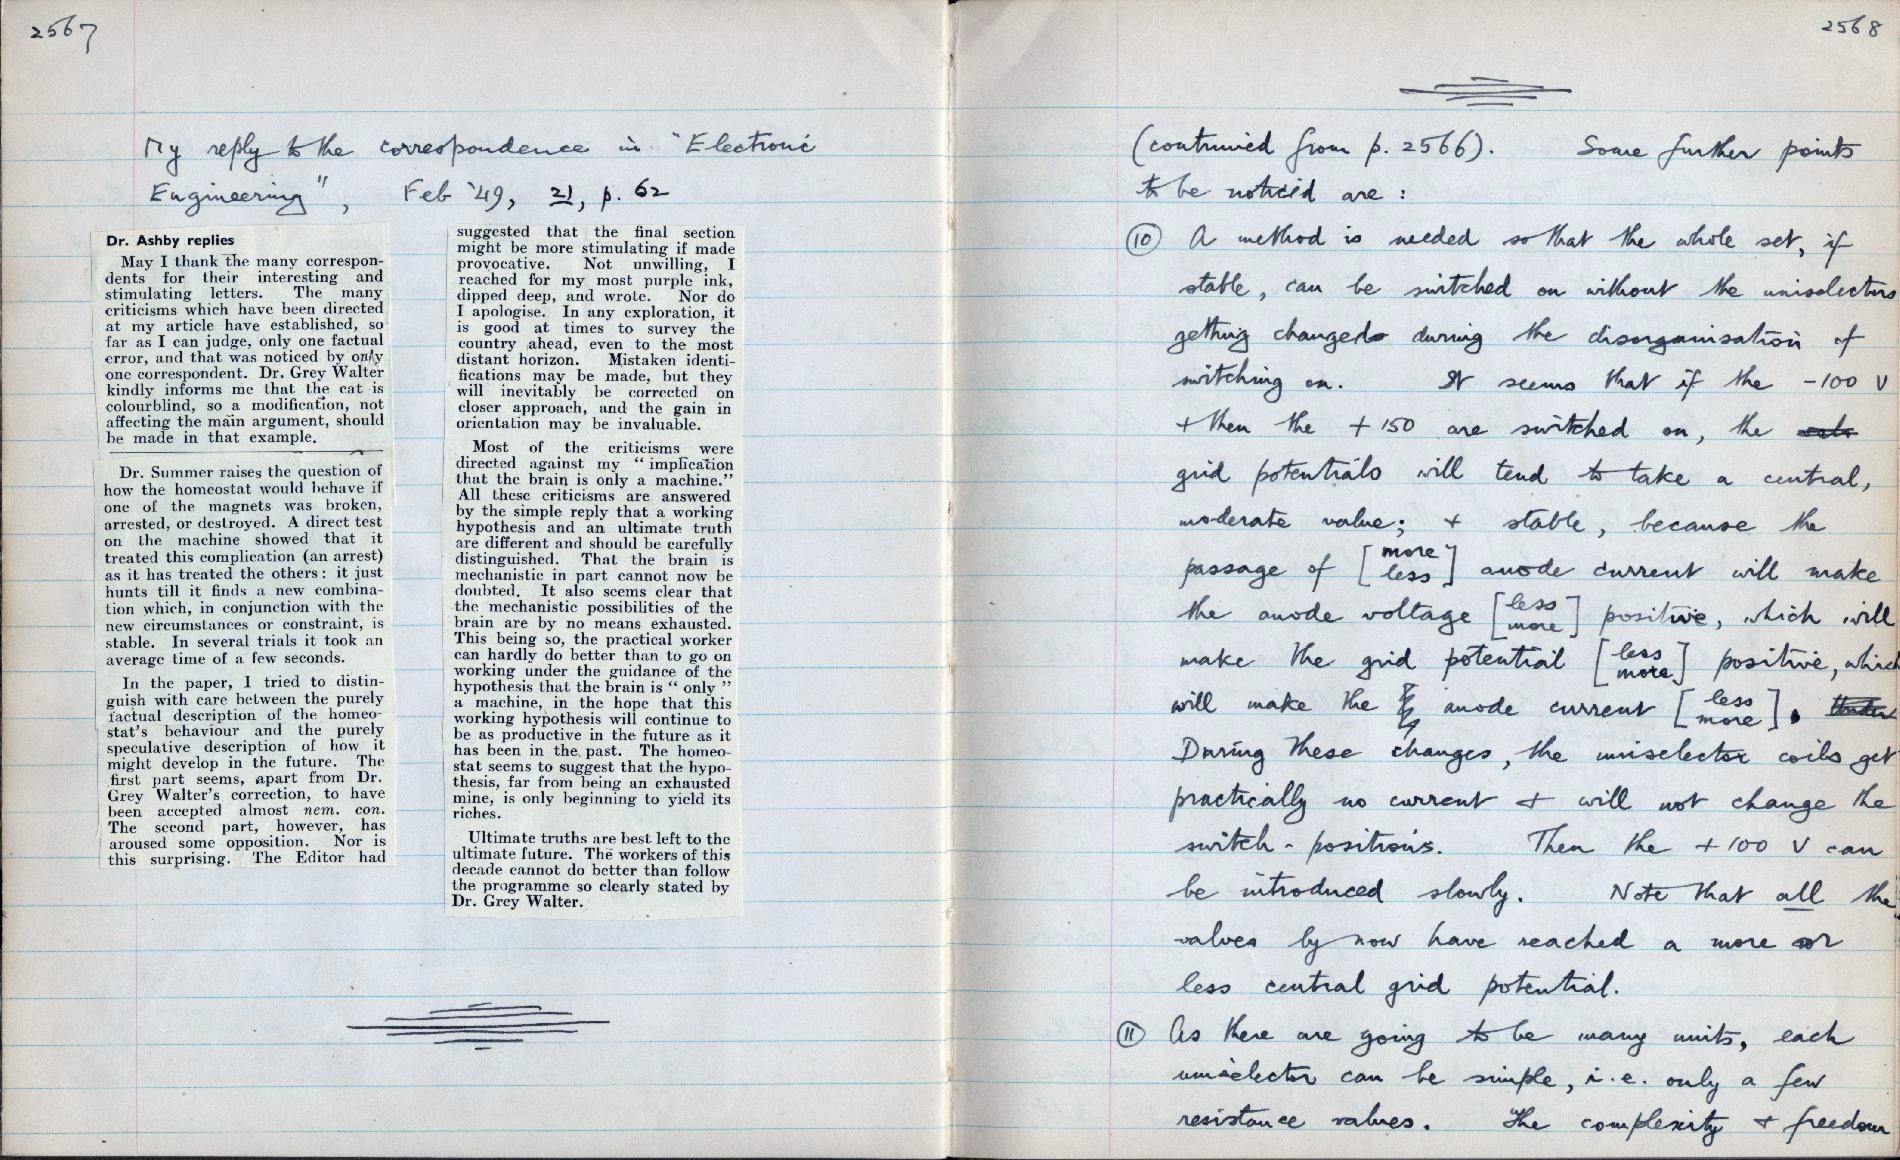 2567
My reply to the correspondence in "Electronic
Engineering", Feb '49, 21, p. 62
Dr. Ashby replies
May I thank the many correspon-
dents for their interesting and
stimulating letters. The many
criticisms which have been directed
at my article have established, so
far as I can judge, only one factual
error, and that was noticed by only
one correspondent. Dr. Grey Walter
kindly informs me that the cat is
colourblind, so a modification, not
affecting the main argument, should
be made in that example.
Dr. Summer raises the question of
how the homeostat would behave if
one of the magnets was broken,
arrested, or destroyed. A direct test
on the machine showed that it
treated this complication (an arrest)
as it has treated the others: it just
hunts till it finds a new combina-
tion which, in conjunction with the
new circumstances or constraint, is
stable. In several trials it took an
average time of a few seconds.
In the paper, I tried to distin-
guish with care between the purely
factual description of the homeo-
stat's behaviour and the purely
speculative description of how it
might develop in the future. The
first part seems, apart from Dr.
Grey Walter's correction, to have
been accepted almost nem. con.
The second part, however, has
aroused some opposition. Nor is
this surprising. The Editor had
suggested that the final section
might be more stimulating if made
provocative. Not unwilling, I
reached for my most purple ink,
dipped deep, and wrote. Nor do
I apologise. In any exploration, it
is good at times to survey the
country ahead, even to the most
distant horizon. Mistaken identi-
fications may be made, but they
will inevitably be corrected on
closer approach, and the gain in
orientation may be invaluable.
Most of the criticisms were
directed against my "implication
that the brain is only a machine."
All these criticisms are answered
by the simple reply that a working
hypothesis and an ultimate truth
are different and should be carefully
distinguished. That the brain is
mechanistic in part cannot now be
doubted. It also seems clear that
the mechanistic possibilities of the
brain are by no means exhausted.
This being so, the practical worker
can hardly do better than to go on
working under the guidance of the
hypothesis that the brain is "only"
a machine, in the hope that this
working hypothesis will continue to
be as productive in the future as it
has been in the past. The homeo-
stat seems to suggest that the hypo-
thesis, far from being an exhausted
mine, is only beginning to yield its
riches.
Ultimate truths are best left to the
ultimate future. The workers of this
decade cannot do better than follow
the programme so clearly stated by
Dr. Grey Walter.
2568
(continued from p. 2566). Some further points
to be noticed are:
⑩ A method is needed so that the whole set, if
stable, can be switched on without the uniselectors
getting changed during the disorganisation of
switching on. It seems that if the -100 V
+ then the +150 are switched on, the
grid potentials will tend to take a central,
moderate value; + stable, because the
passage of [more less] anode current will make
the anode voltage [less more] positive, which will
make the grid potential [less more] positive, which
will make the anode current [less more].
During these changes, the uniselector coils get
practically no current + will not change the
switch-positions. Then the +100 V can
be introduced slowly. Note that all the
valves by now have reached a more or
less central grid potential.
⑪ As there are going to be many units, each
uniselector can be simple, i.e. only a few
resistance values. The complexity + freedom